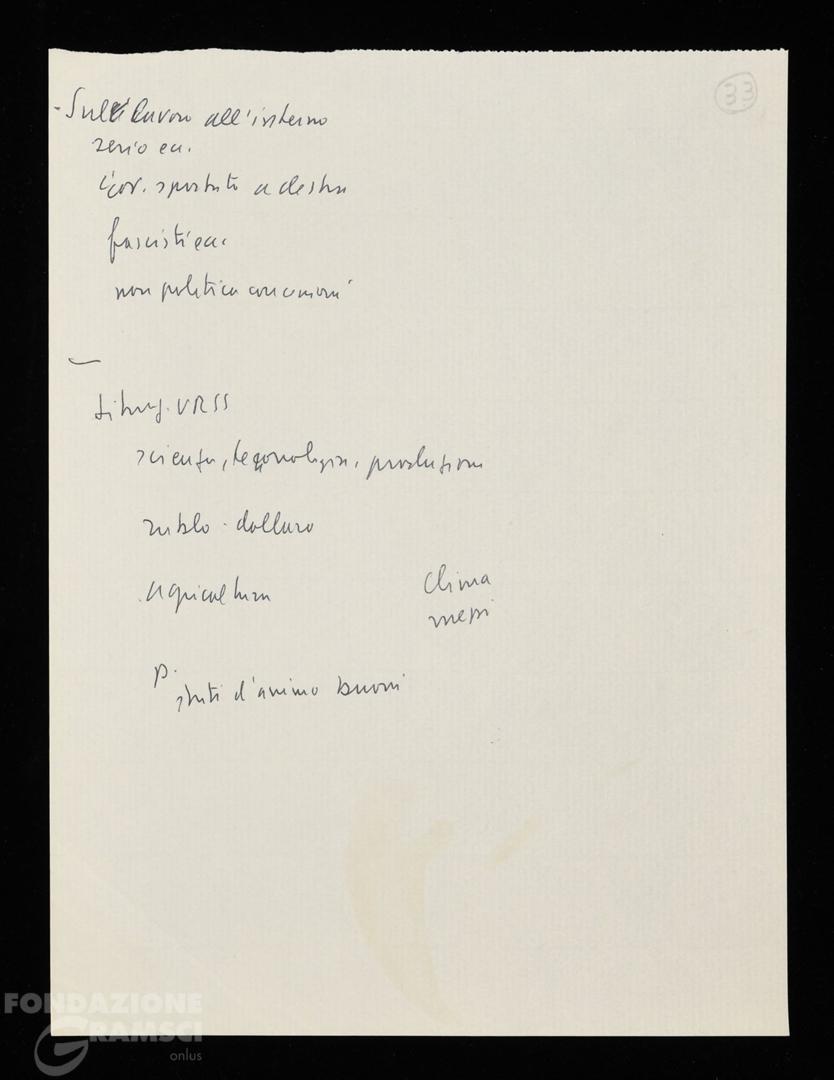 33
- Sul lavoro all'interno
serio ecc.
Gov. spostato a destra
fascisti ecc.
non politica con comuni
—
URSS
scienza, tecnologia, produzione
rublo - dollaro
agricoltura clima
messi
P.
stati d'animo buoni
FONDAZIONE
GRAMSCI
onlus